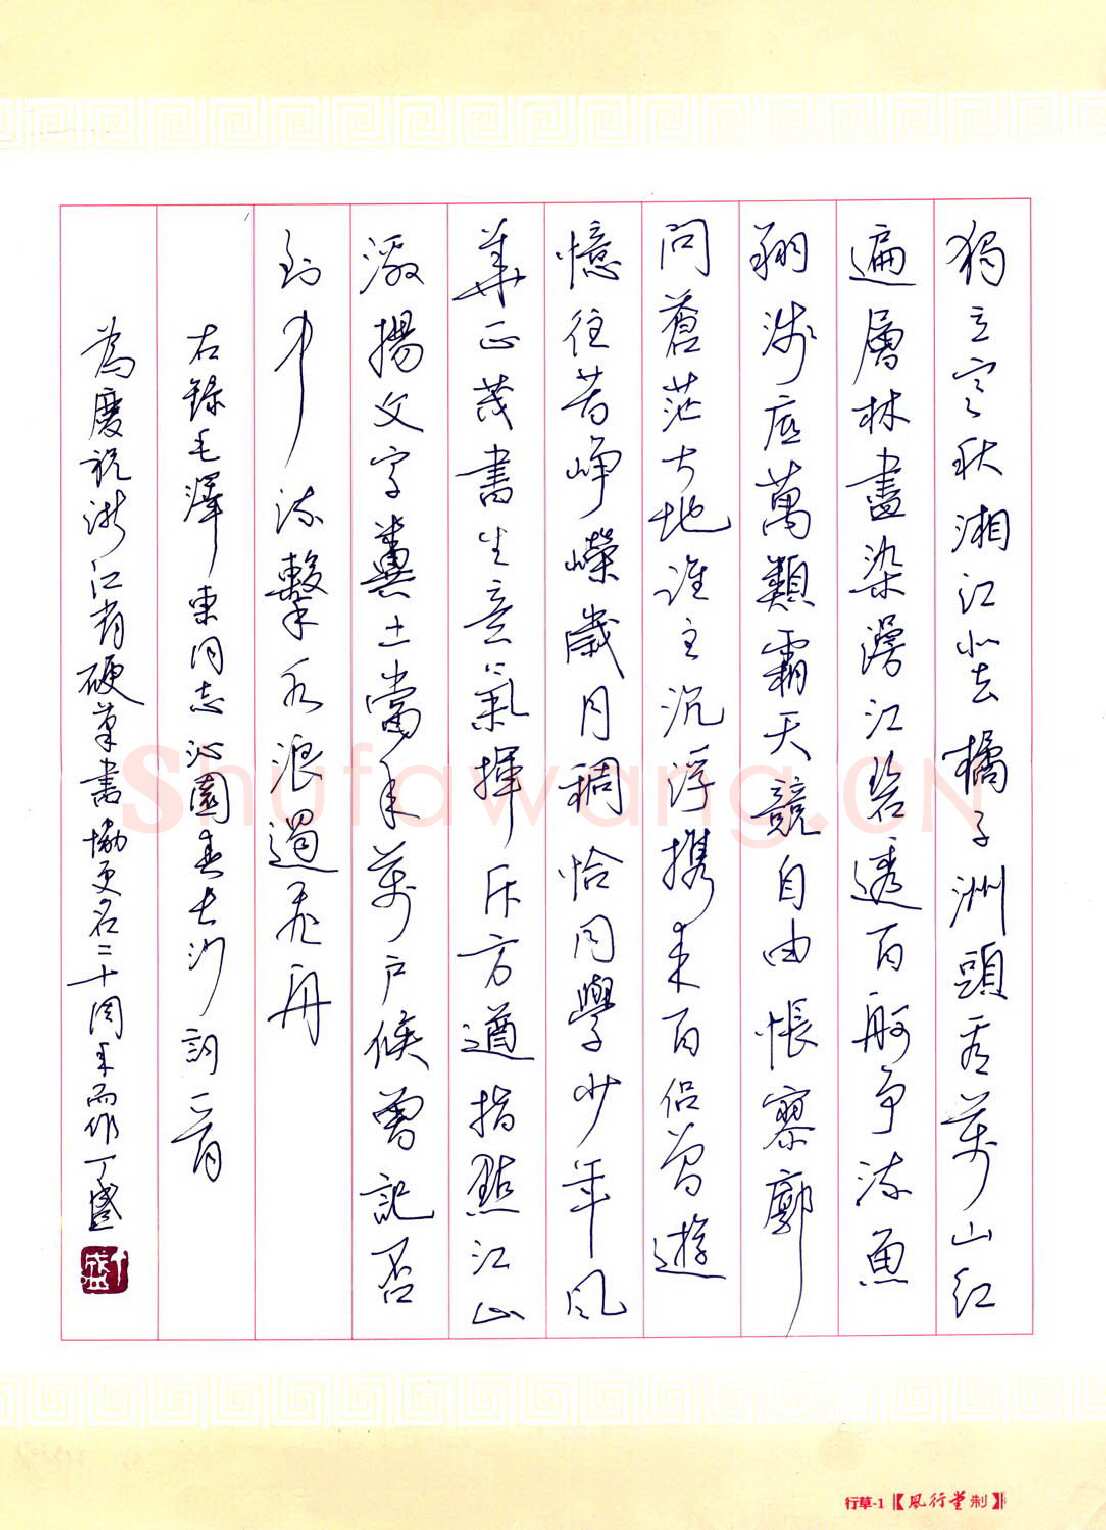 獨立寒秋湘江北去橘子洲頭看萬山紅
遍層林盡染漫江碧透百舸争流魚
翔淺底萬類霜天競自由悵寥廓
問蒼茫大地誰主沉浮携來百侣曾遊
憶往昔崢嶸歲月稠恰同學少年風
華正茂書生意氣揮斥方遒指點江山
激揚文字糞土當年萬户侯曾記否
到中流擊水浪遏飛舟
右錄毛澤東同志沁園春長沙詞一首
為慶祝浙江省硬筆書協更名二十周年而作丁盛
丁盛
Shufawang.CN
行草-1【風行堂制】